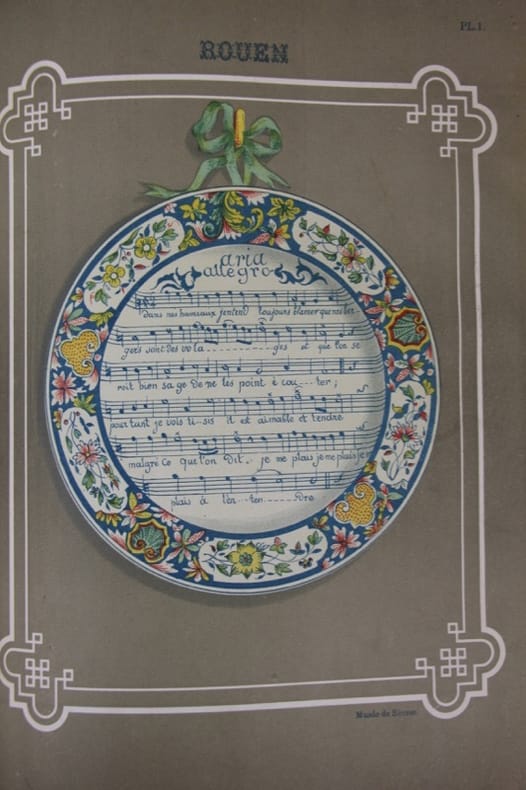 PL.1.
ROUEN
aria
allegro
dans nos hameaux j'entend toujours blamer que nos ber
gers sont des vola - - - - - - - - ges et que l'on se
roit bien sage de ne les point écou - - - ter ;
pourtant je vois ti - - sis il est aimable et tendre
malgré ce que l'on dit - - je me plais je me plais je m
plais à l'en - - ten - - - - - - dre
Musée de Sèvres